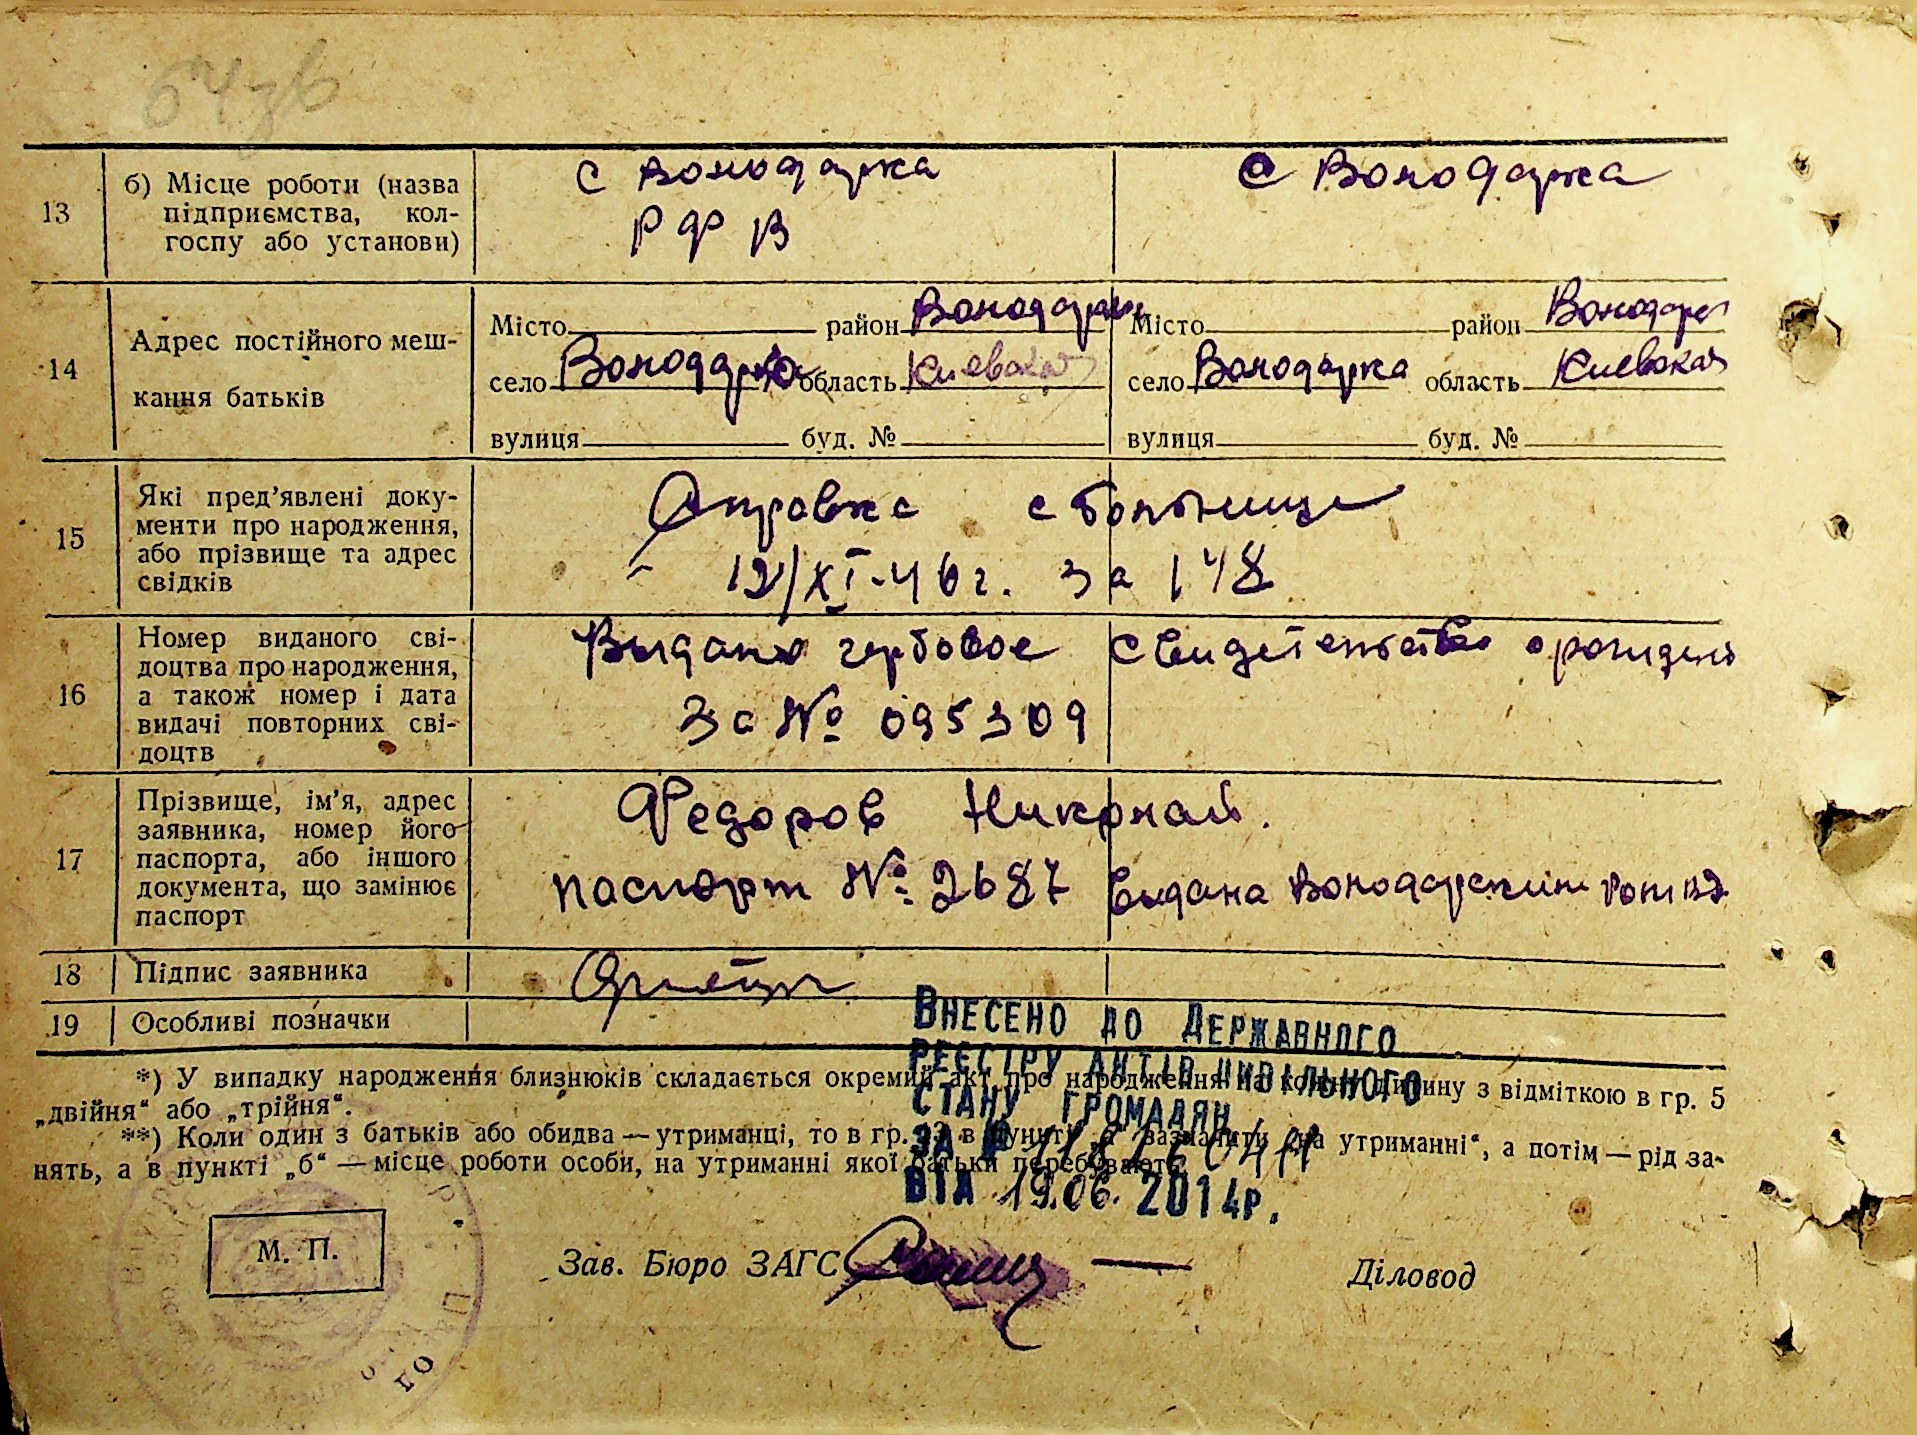 13 б) Місце роботи (назва підприємства, колгоспу або установи)
с Володарка
РФВ
с Володарка
14 Адрес постійного мешкання батьків
Місто район Володарск
село Володарка область Киевская
вулиця буд. №
Місто район Володарс
село Володарка область Киевская
вулиця буд. №
15 Які пред'явлені документи про народження, або прізвище та адрес свідків
Справка с больнице
12/XI-46 г. За 148
16 Номер виданого свідоцтва про народження, а також номер і дата видачі повторних свідоцтв
Выдано гербовое свидетельство о рожден
За № 095309
17 Прізвище, ім'я, адрес заявника, номер його паспорта, або іншого документа, що замінює паспорт
Федоров Николай.
паспорт № 2687 видана Володарским
18 Підпис заявника
19 Особливі позначки
Внесено до Державного
реєстру актів цивільного
стану громадян
за №
від 19.06. 2014р.
*) У випадку народження близнюків складається окремий акт про народження на кожну дитину з відміткою в гр. 5
„двійня“ або „трійня“.
**) Коли один з батьків або обидва — утриманці, то в гр. 13 в пункті „а“ зазначити „на утриманні“, а потім — рід за-
нять, а в пункті „б“ — місце роботи особи, на утриманні якої батьки перебувають.
М. П.
Зав. Бюро ЗАГС
Діловод